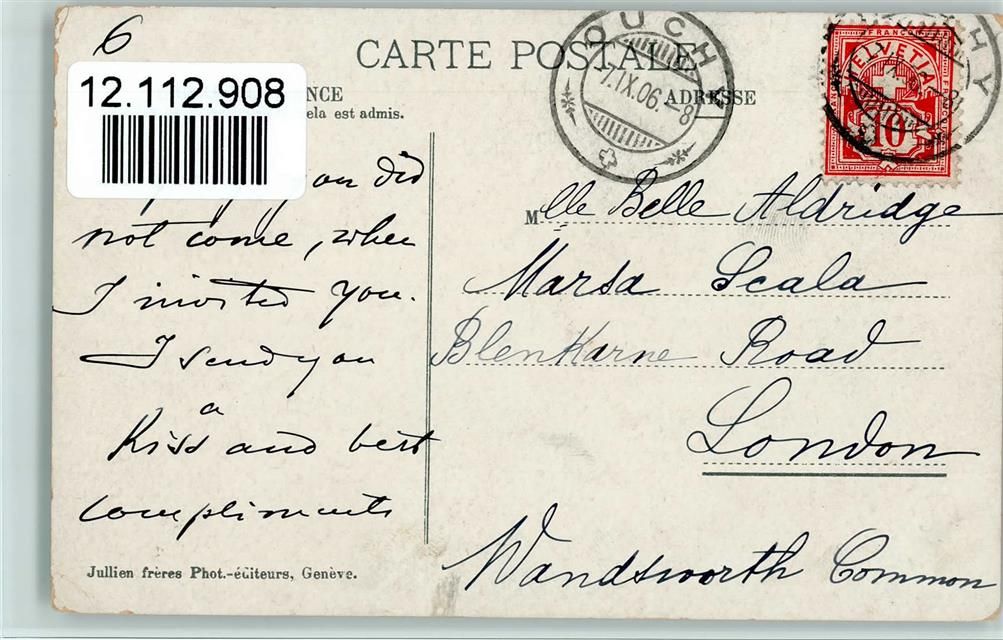 6
CARTE POSTALE
12.112.908
NCE
ADRESSE
ela est admis.
OUCHY
7.IX.06.-8
FRANCO
HELVETIA
10
you did
not come, when
I invited you.
I send you
a
Kiss and best
compliments
Mlle Belle Aldridge
Marsa Scala
Blenkarne Road
London
Wandsworth Common
Jullien frères Phot.-éditeurs, Genève.